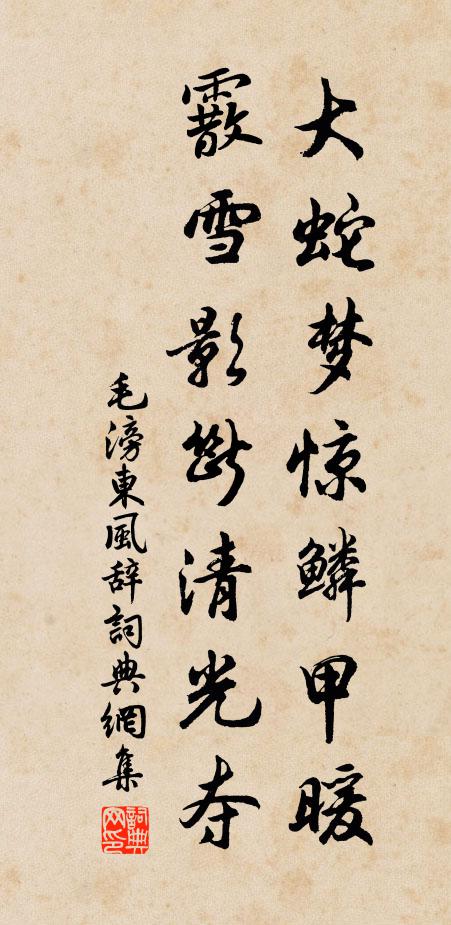 大蛇梦惊鳞甲暖
霰雪影断清光夺
毛滂東風辞詞典網集
詞典网印